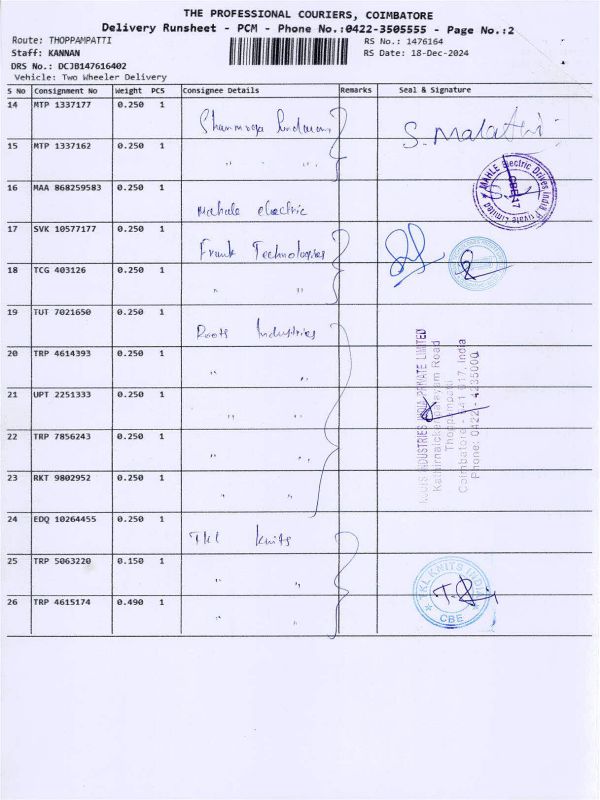 THE PROFESSIONAL COURIERS, COIMBATORE
Delivery Runsheet - PCM - Phone No.:0422-3505555 - Page No.:2
Route: THOPPAMPATTI
RS No.: 1476164
Staff: KANNAN
RS Date: 18-Dec-2024
DRS No.: DCJB147616402
Vehicle: Two Wheeler Delivery
S No Consignment No Weight PCS Consignee Details Remarks Seal & Signature
14 MTP 1337177 0.250 1 Shanmuga
S. Malathi
15 MTP 1337162 0.250 1 " "
MAHLE Electric Drives India Private Limited
16 MAA 868259583 0.250 1 Mahale electric
17 SVK 10577177 0.250 1 Frank Technologies
18 TCG 403126 0.250 1 " "
19 TUT 7021650 0.250 1 Roots Industries
20 TRP 4614393 0.250 1 " "
21 UPT 2251333 0.250 1 " "
22 TRP 7856243 0.250 1 " "
23 RKT 9802952 0.250 1 " "
ROOTS INDUSTRIES INDIA PRIVATE LIMITED
Kathirnaickenpalayam Road
Thoppampatti
Coimbatore - 641 617. India
Phone: 0422 - 4235000
24 EDQ 10264455 0.250 1 TKL Knits
25 TRP 5063220 0.150 1 " "
26 TRP 4615174 0.490 1 " "
TKL KNITS INDIA
CBE